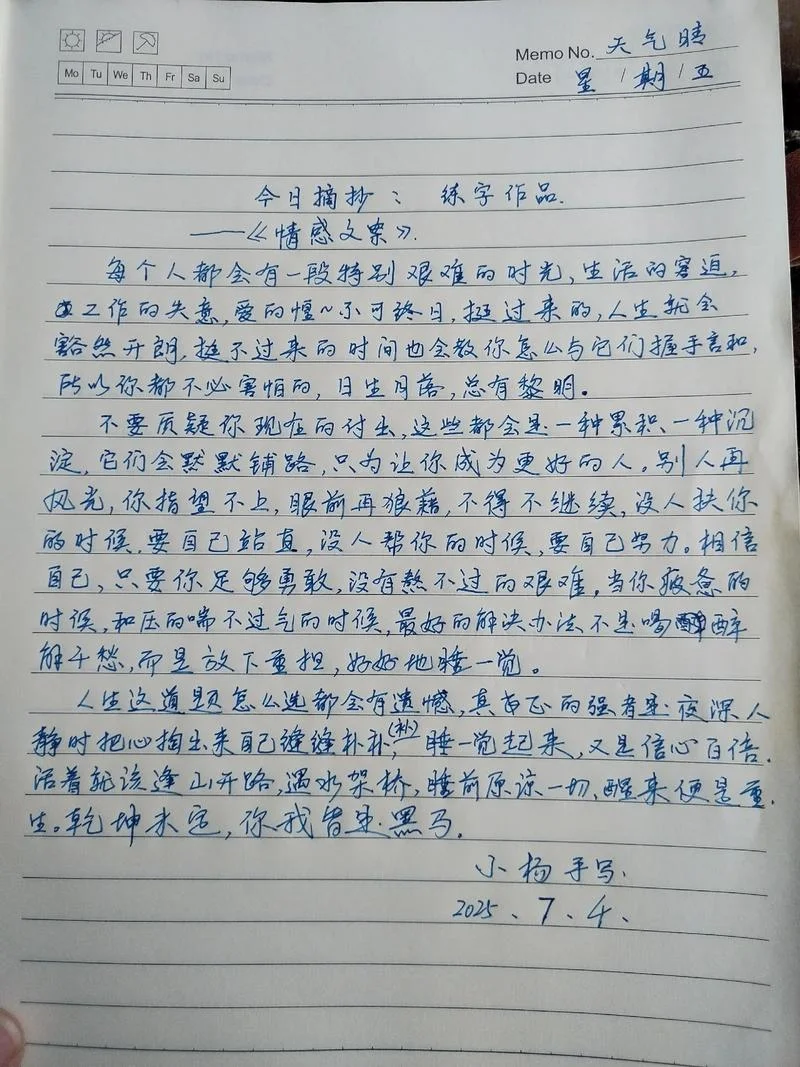 Memo No. 天气晴
Mo Tu We Th Fr Sa Su
Date 星 / 期 / 五
今日摘抄： 练字作品.
——《情感文案》.
每个人都会有一段特别艰难的时光,生活的窘迫,
工作的失意,爱的惶~不可终日,挺过来的,人生就会
豁然开朗,挺不过来的时间也会教你怎么与它们握手言和,
所以你都不必害怕的,日生月落,总有黎明。
不要质疑你现在的付出,这些都会是一种累积、一种沉
淀,它们会默默铺路,只为让你成为更好的人。别人再
风光,你指望不上,眼前再狼藉,不得不继续,没人扶你
的时候,要自己站直,没人帮你的时候,要自己努力。相信
自己,只要你足够勇敢,没有熬不过的艰难,当你疲惫的
时候,和压的喘不过气的时候,最好的解决办法不是喝醉
解千愁,而是放下重担,好好地睡一觉。
人生这道题怎么选都会有遗憾,真正的强者是夜深人
静时把心掏出来自己缝缝补补,(补)睡一觉起来,又是信心百倍.
活着就该逢山开路,遇水架桥,睡前原谅一切,醒来便是重.
生。乾坤未定,你我皆是黑马.
小杨手写.
2025、7、4、